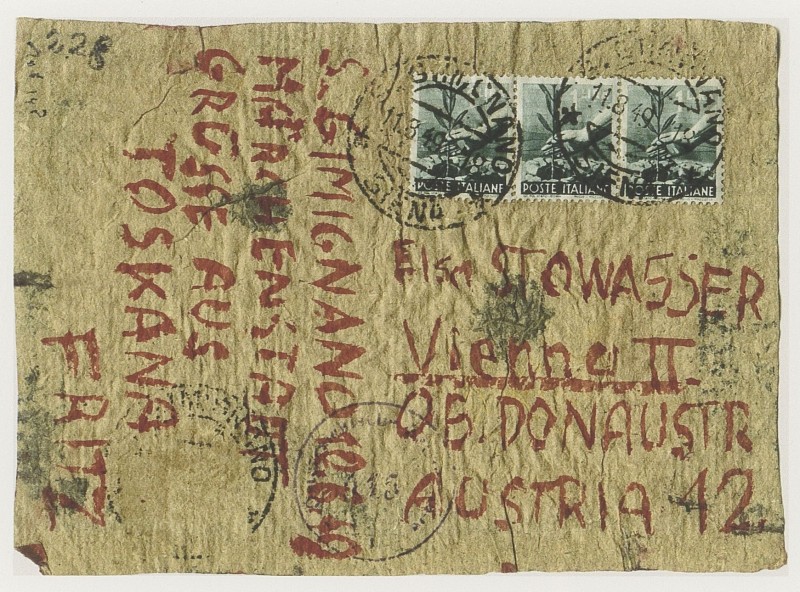 226
S. GIMIGNANO 10.8.49
MÄRCHENSTADT
GRÜSSE AUS
TOSKANA
FRITZ
S. GIMIGNANO
11.8.49
SIENA
11.8.49
POSTE ITALIANE
POSTE ITALIANE
POSTE ITALIANE
Elsa STOWASSER
Vienna II
OB. DONAUSTR
AUSTRIA 42.